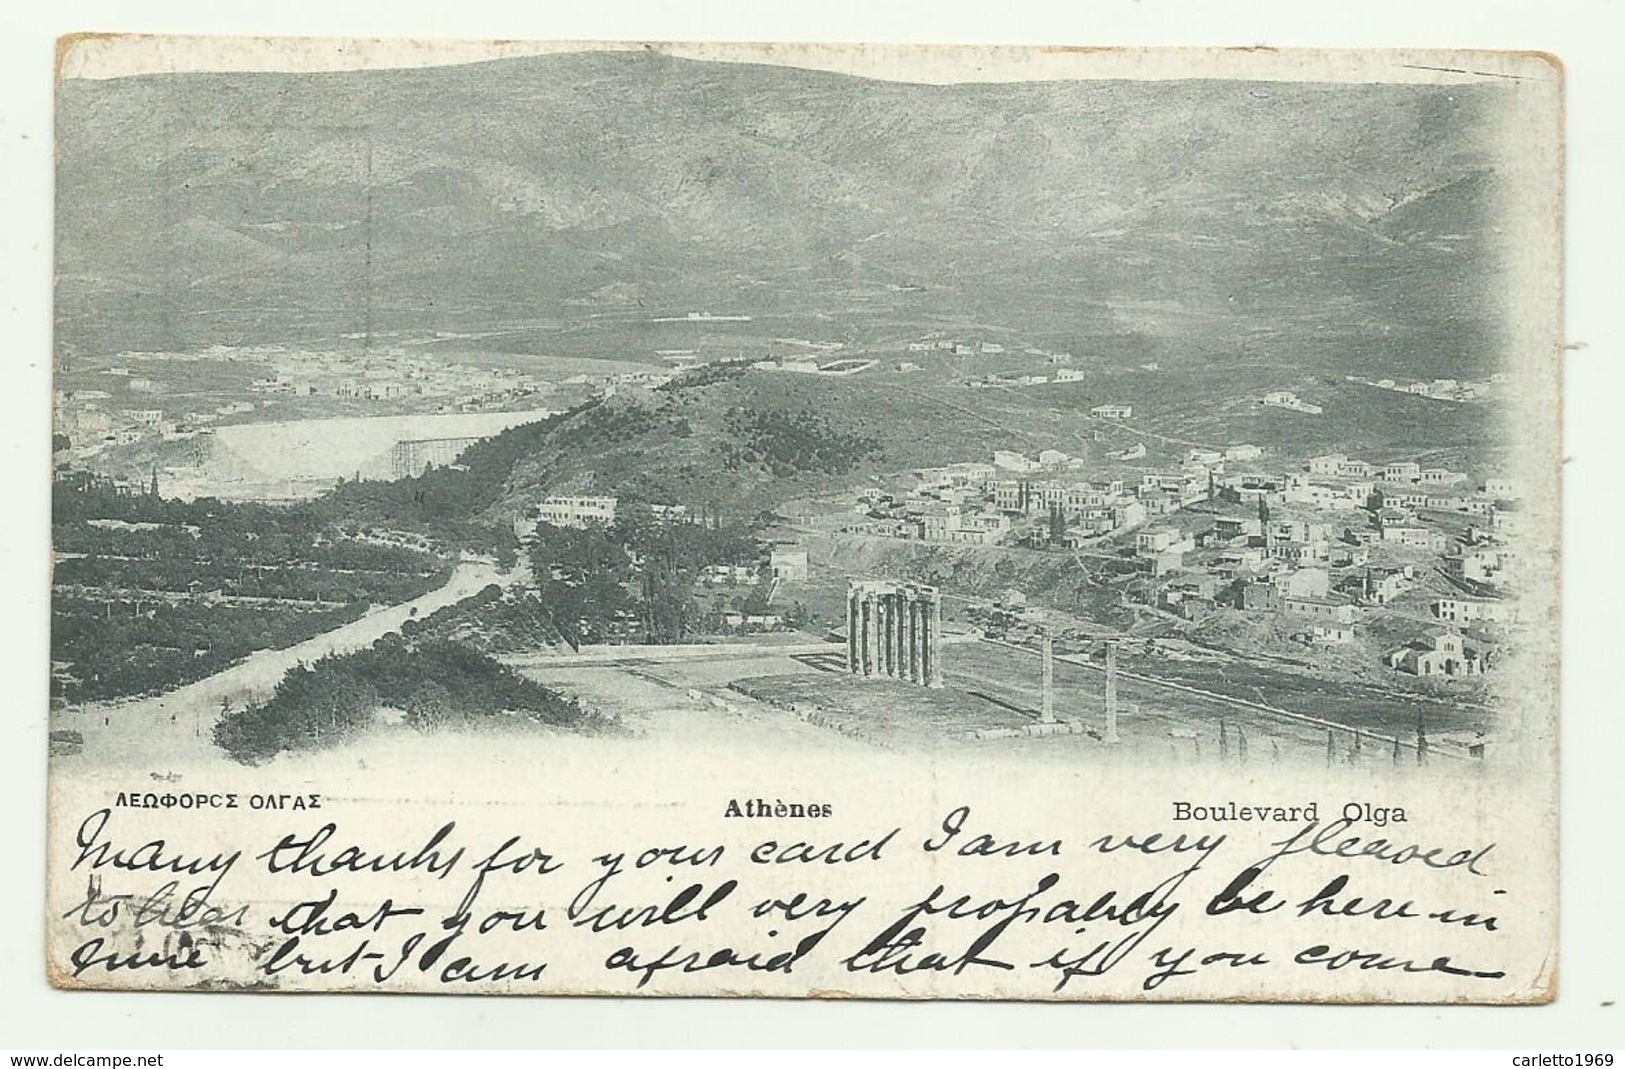 ΛΕΩΦΟΡΟΣ ΟΛΓΑΣ Athènes Boulevard Olga
Many thanks for your card I am very pleased
to hear that you will very probably be here in
June but I am afraid that if you come
www.delcampe.net carletto1969